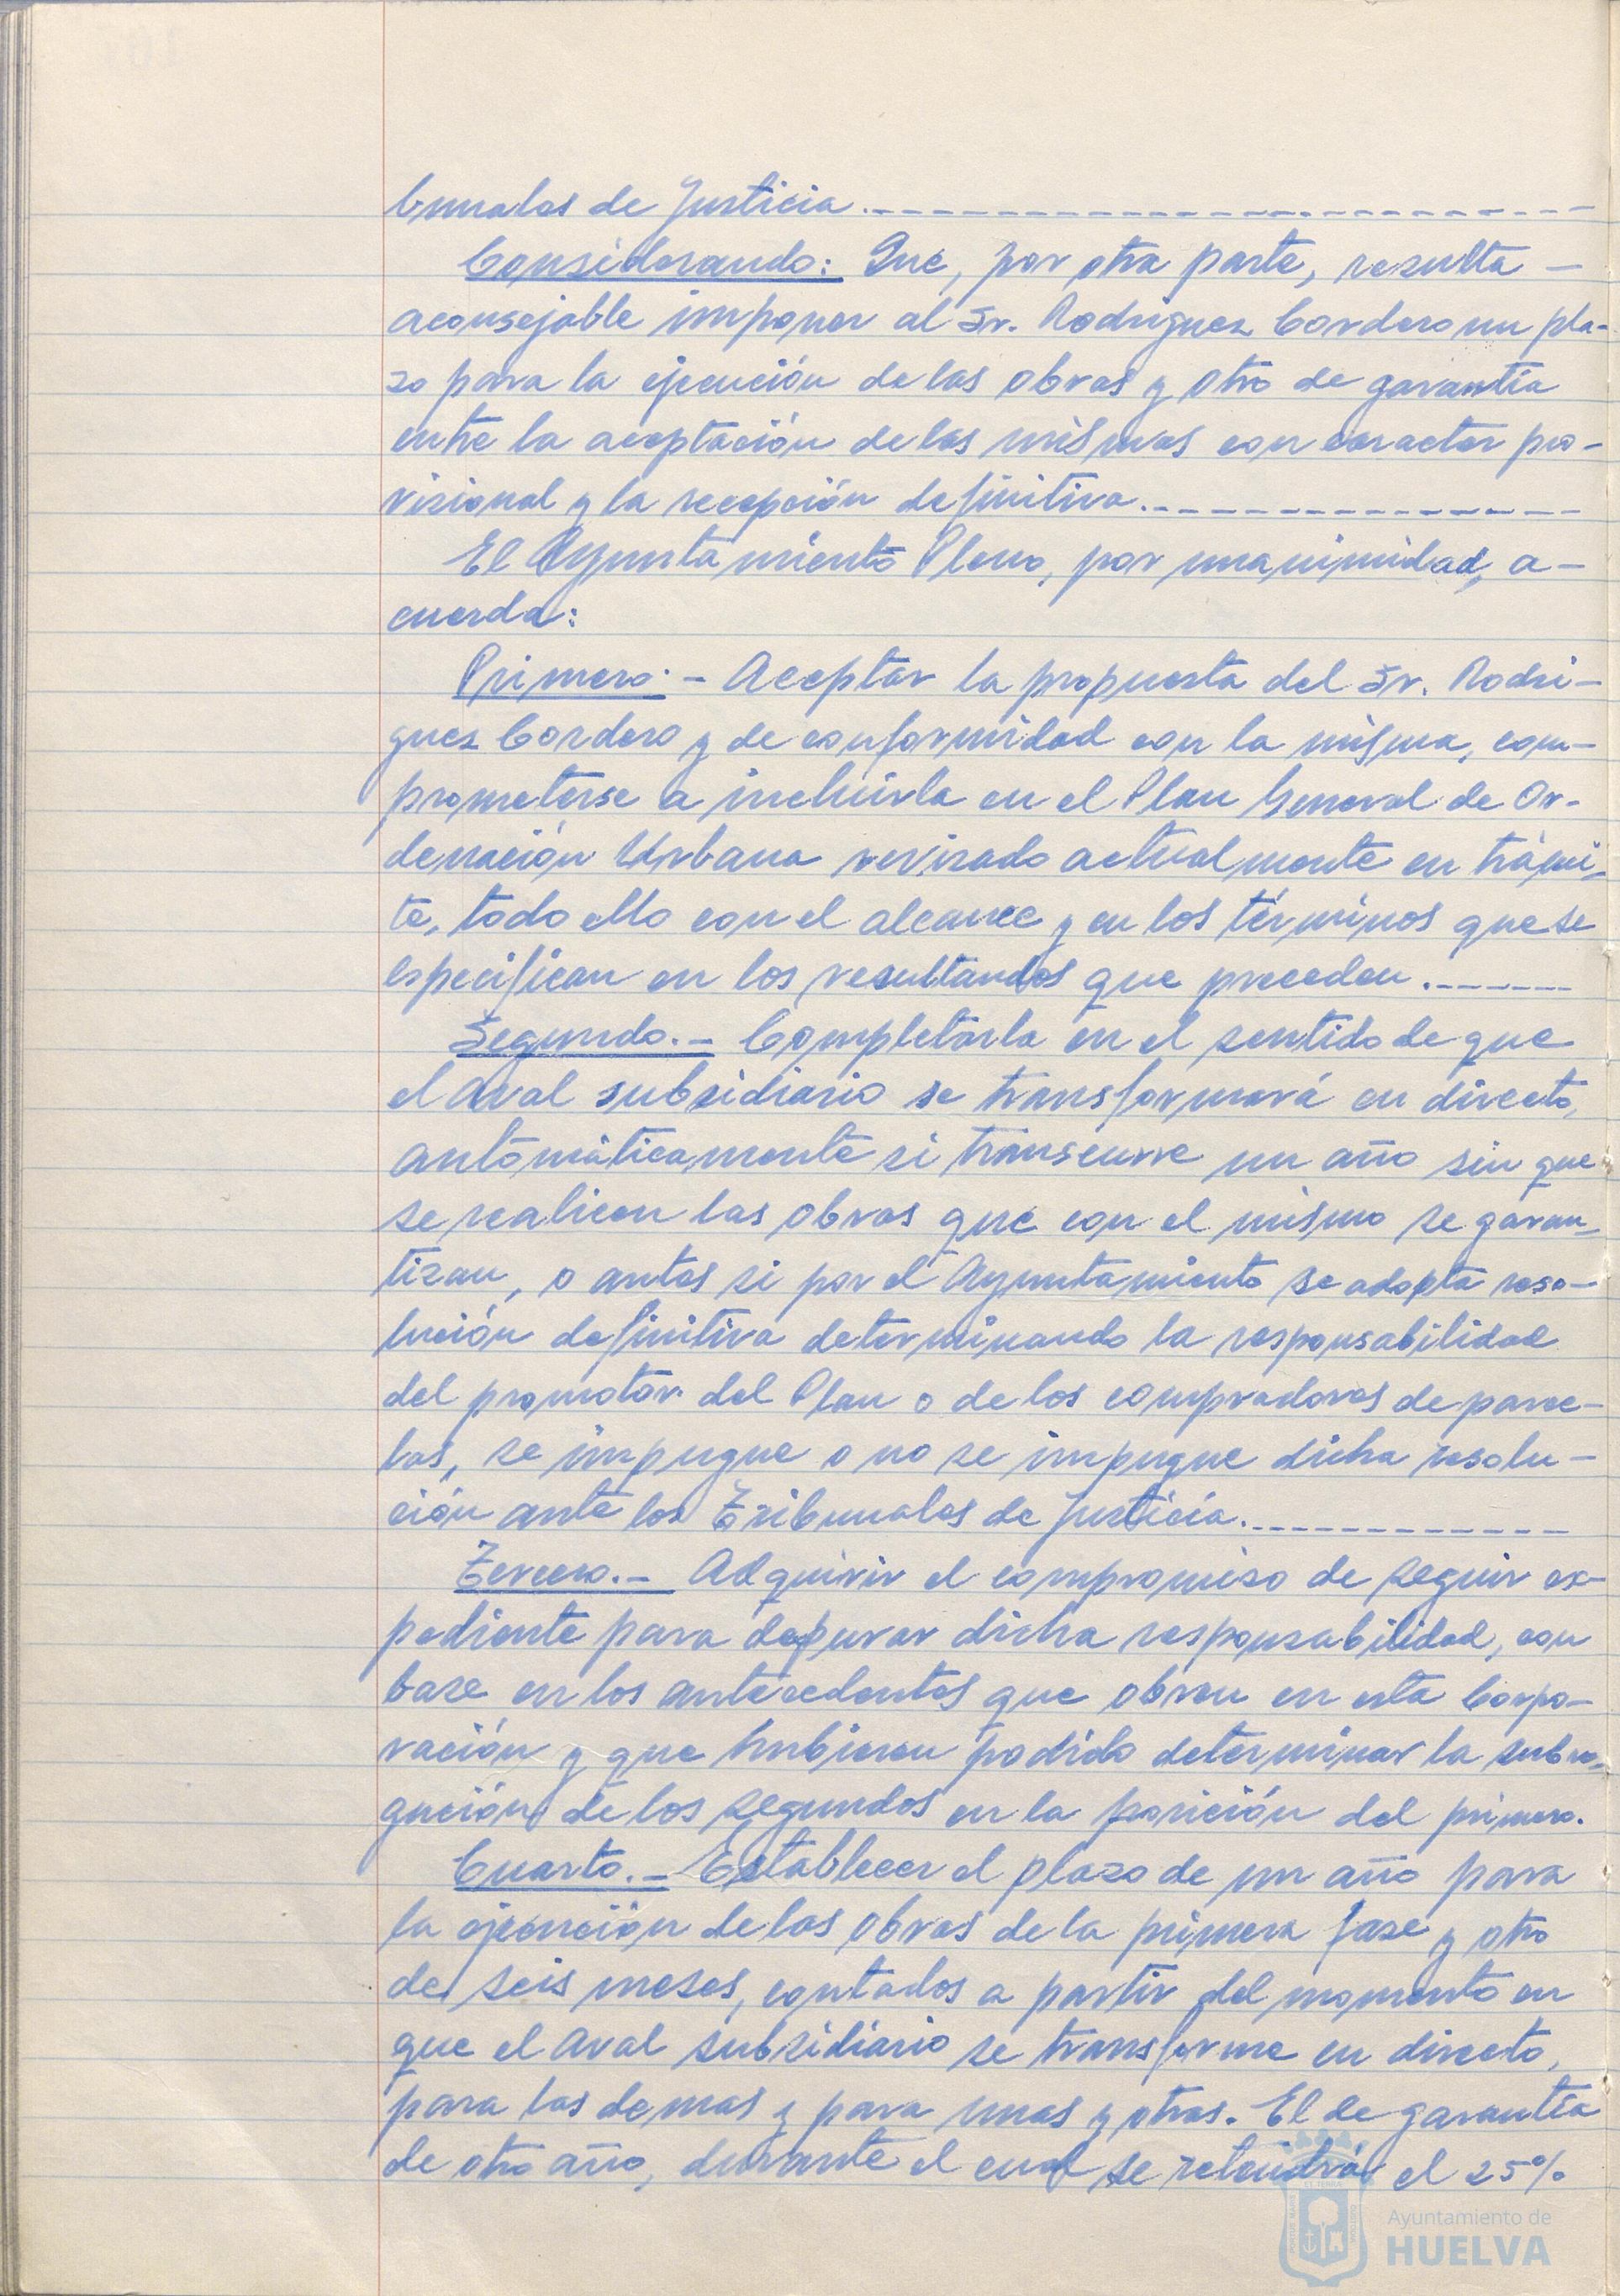 bunales de Justicia.
Considerando: Que, por otra parte, resulta -
aconsejable imponer al Sr. Rodriguez Cordero un pla-
zo para la ejecución de las obras y otro de garantía
entre la aceptación de las mismas con caracter pro-
visional y la recepción definitiva.
El Ayuntamiento Pleno, por unanimidad, a-
cuerda:
Primero.- Aceptar la propuesta del Sr. Rodri-
guez Cordero y de conformidad con la misma, com-
prometerse a incluirla en el Plan General de Or-
denación Urbana revisado actualmente en trámi-
te, todo ello con el alcance y en los términos que se
especifican en los resultandos que preceden.
Segundo.- Completarla en el sentido de que
el Aval subsidiario se transformará en directo,
automáticamente si transcurre un año sin que
se realicen las obras que con el mismo se garan-
tizan, o antes si por el Ayuntamiento se adopta reso-
lución definitiva determinando la responsabilidad
del promotor del Plan o de los compradores de parce-
las, se impugne o no se impugne dicha resolu-
ción ante los Tribunales de Justicia.
Tercero.- Adquirir el compromiso de seguir ex-
pediente para depurar dicha responsabilidad, con
base en los antecedentes que obren en esta Corpo-
ración y que hubieren podido determinar la subro-
gación de los segundos en la posición del primero.
Cuarto.- Establecer el plazo de un año para
la ejecución de las obras de la primera fase y otro
de seis meses, contados a partir del momento en
que el Aval subsidiario se transforme en directo,
para las demas y para unas y otras. El de garantía
de otro año, durante el cual se retendrá el 25%
Ayuntamiento de
HUELVA